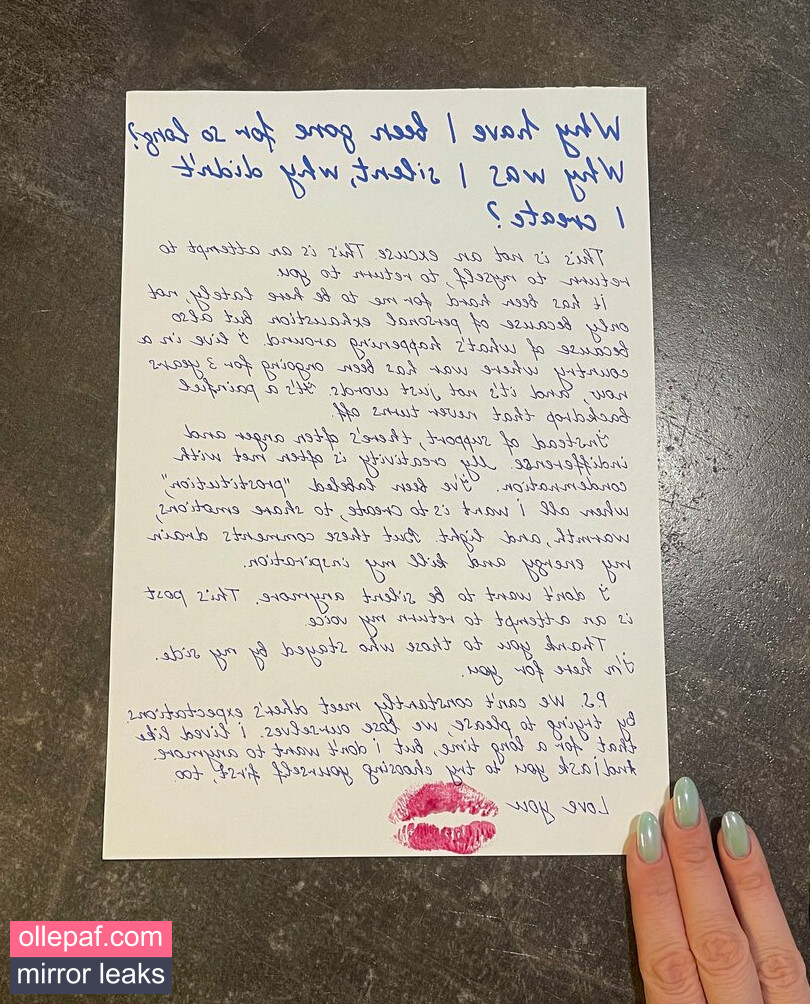 Why have I been gone for so long?
Why was I silent, why didn't
I create?
This is not an excuse. This is an attempt to
return to myself, to return to you.
It has been hard for me to be here lately, not
only because of personal exhaustion but also
because of what's happening around. I live in a
country where war has been ongoing for 3 years
now, and it's not just words. It's a painful
backdrop that never turns off.
Instead of support, there's often anger and
indifference. My creativity is often met with
condemnation. I've been labeled "prostitution",
when all I want is to create, to share emotions,
warmth, and light. But these comments drain
my energy and kill my inspiration.
I don't want to be silent anymore. This post
is an attempt to return my voice.
Thank you to those who stayed by my side.
I'm here for you.
P.S. We can't constantly meet other's expectations.
By trying to please, we lose ourselves. I lived like
that for a long time, but I don't want to anymore.
And i ask you to try choosing yourself first, too.
Love you
ollepaf.com
mirror leaks